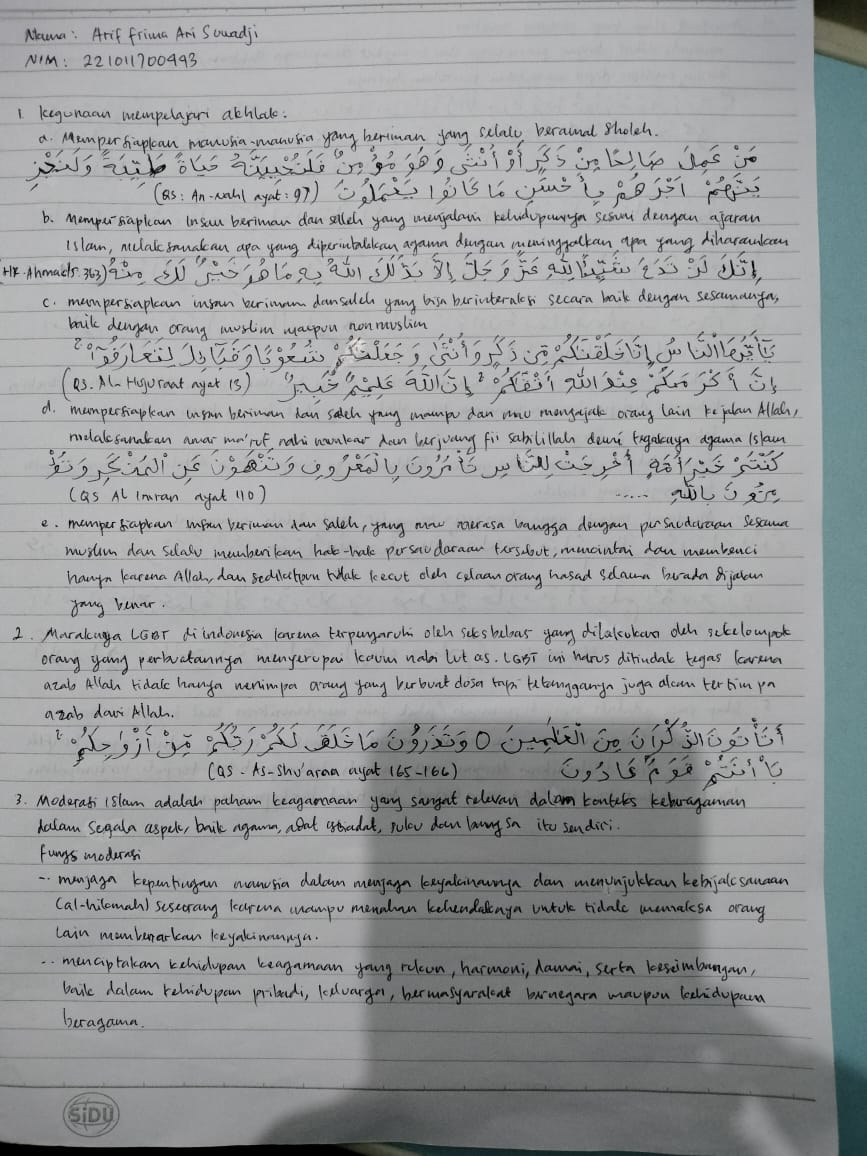 Nama : Arif frima Ari Suwadji
NIM : 221011700493
1. kegunaan mempelajari akhlak :
a. Mempersiapkan manusia-manusia yang beriman yang selalu beramal sholeh.
مَنْ عَمِلَ صَالِحًا مِنْ ذَكَرٍ أَوْ أُنْثَى وَهُوَ مُؤْمِنٌ فَلَنُحْيِيَنَّهُ حَيَاةً طَيِّبَةً وَلَنَجْزِ
يَنَّهُمْ أَجْرَهُمْ بِأَحْسَنِ مَا كَانُوا يَعْمَلُونَ (QS : An-nahl ayat : 97)
b. mempersiapkan insan beriman dan saleh yang menjalani kehidupannya sesuai dengan ajaran
Islam, melaksanakan apa yang diperintahkan agama dengan meninggalkan apa yang diharamkan
إِنَّكَ لَنْ تَدَعَ شَيْئًا لِلَّهِ عَزَّ وَجَلَّ إِلَّا بَدَّلَكَ اللَّهُ بِهِ مَا هُوَ خَيْرٌ لَكَ مِنْهُ (HR. Ahmad 5:363)
c. mempersiapkan insan beriman dan saleh yang bisa berinteraksi secara baik dengan sesamanya,
baik dengan orang muslim maupun non muslim
يَٰٓأَيُّهَا النَّاسُ إِنَّا خَلَقْنَٰكُمْ مِّن ذَكَرٍ وَأُنْثَىٰ وَجَعَلْنَٰكُمْ شُعُوْبًا وَقَبَآئِلَ لِتَعَارَفُوْٓا ۚ
إِنَّ أَكْرَمَكُمْ عِنْدَ اللّٰهِ أَتْقَىٰكُمْ ۚ إِنَّ اللّٰهَ عَلِيْمٌ خَبِيْرٌ (QS. Al-Hujuraat ayat 13)
d. mempersiapkan insan beriman dan saleh yang mampu dan mau mengajak orang lain ke jalan Allah,
melaksanakan amar ma'ruf nahi munkar dan berjuang fii sabilillah demi tegaknya agama Islam
كُنْتُمْ خَيْرَ أُمَّةٍ أُخْرِجَتْ لِلنَّاسِ تَأْمُرُونَ بِالْمَعْرُوفِ وَتَنْهَوْنَ عَنِ الْمُنْكَرِ وَتُؤْ
مِنُونَ بِاللَّهِ ..... (QS Al Imran ayat 110)
e. mempersiapkan insan beriman dan saleh, yang mau merasa bangga dengan persaudaraan sesama
muslim dan selalu memberikan hak-hak persaudaraan tersebut, mencintai dan membenci
hanya karena Allah, dan sedikitpun tidak kecut oleh celaan orang hasad selama berada dijalan
yang benar.
2. Maraknya LGBT di indonesia karena terpengaruhi oleh seks bebas yang dilakukan oleh sekelompok
orang yang perbuatannya menyerupai kaum nabi lut as. LGBT ini harus ditindak tegas karena
azab Allah tidak hanya menimpa orang yang berbuat dosa tapi tetangganya juga akan tertimpa
azab dari Allah.
أَتَأْتُونَ الذُّكْرَانَ مِنَ الْعَٰلَمِينَ O وَتَذَرُونَ مَا خَلَقَ لَكُمْ رَبُّكُمْ مِّنْ أَزْوَاجِكُمْ ۚ
بَلْ أَنْتُمْ قَوْمٌ عَادُونَ (QS - As-Shu'araa ayat 165-166)
3. Moderasi Islam adalah paham keagamaan yang sangat relevan dalam konteks keberagaman
dalam segala aspek, baik agama, adat istiadat, suku dan bangsa itu sendiri.
fungsi moderasi
-. menjaga kepentingan manusia dalam menjaga keyakinannya dan menunjukkan kebijaksanaan
(al-hikmah) seseorang karena mampu menahan kehendaknya untuk tidak memaksa orang
lain membenarkan keyakinannya.
-. menciptakan kehidupan keagamaan yang rukun, harmoni, damai, serta keseimbangan,
baik dalam kehidupan pribadi, keluarga, bermasyarakat bernegara maupun kehidupan
beragama.
SiDU